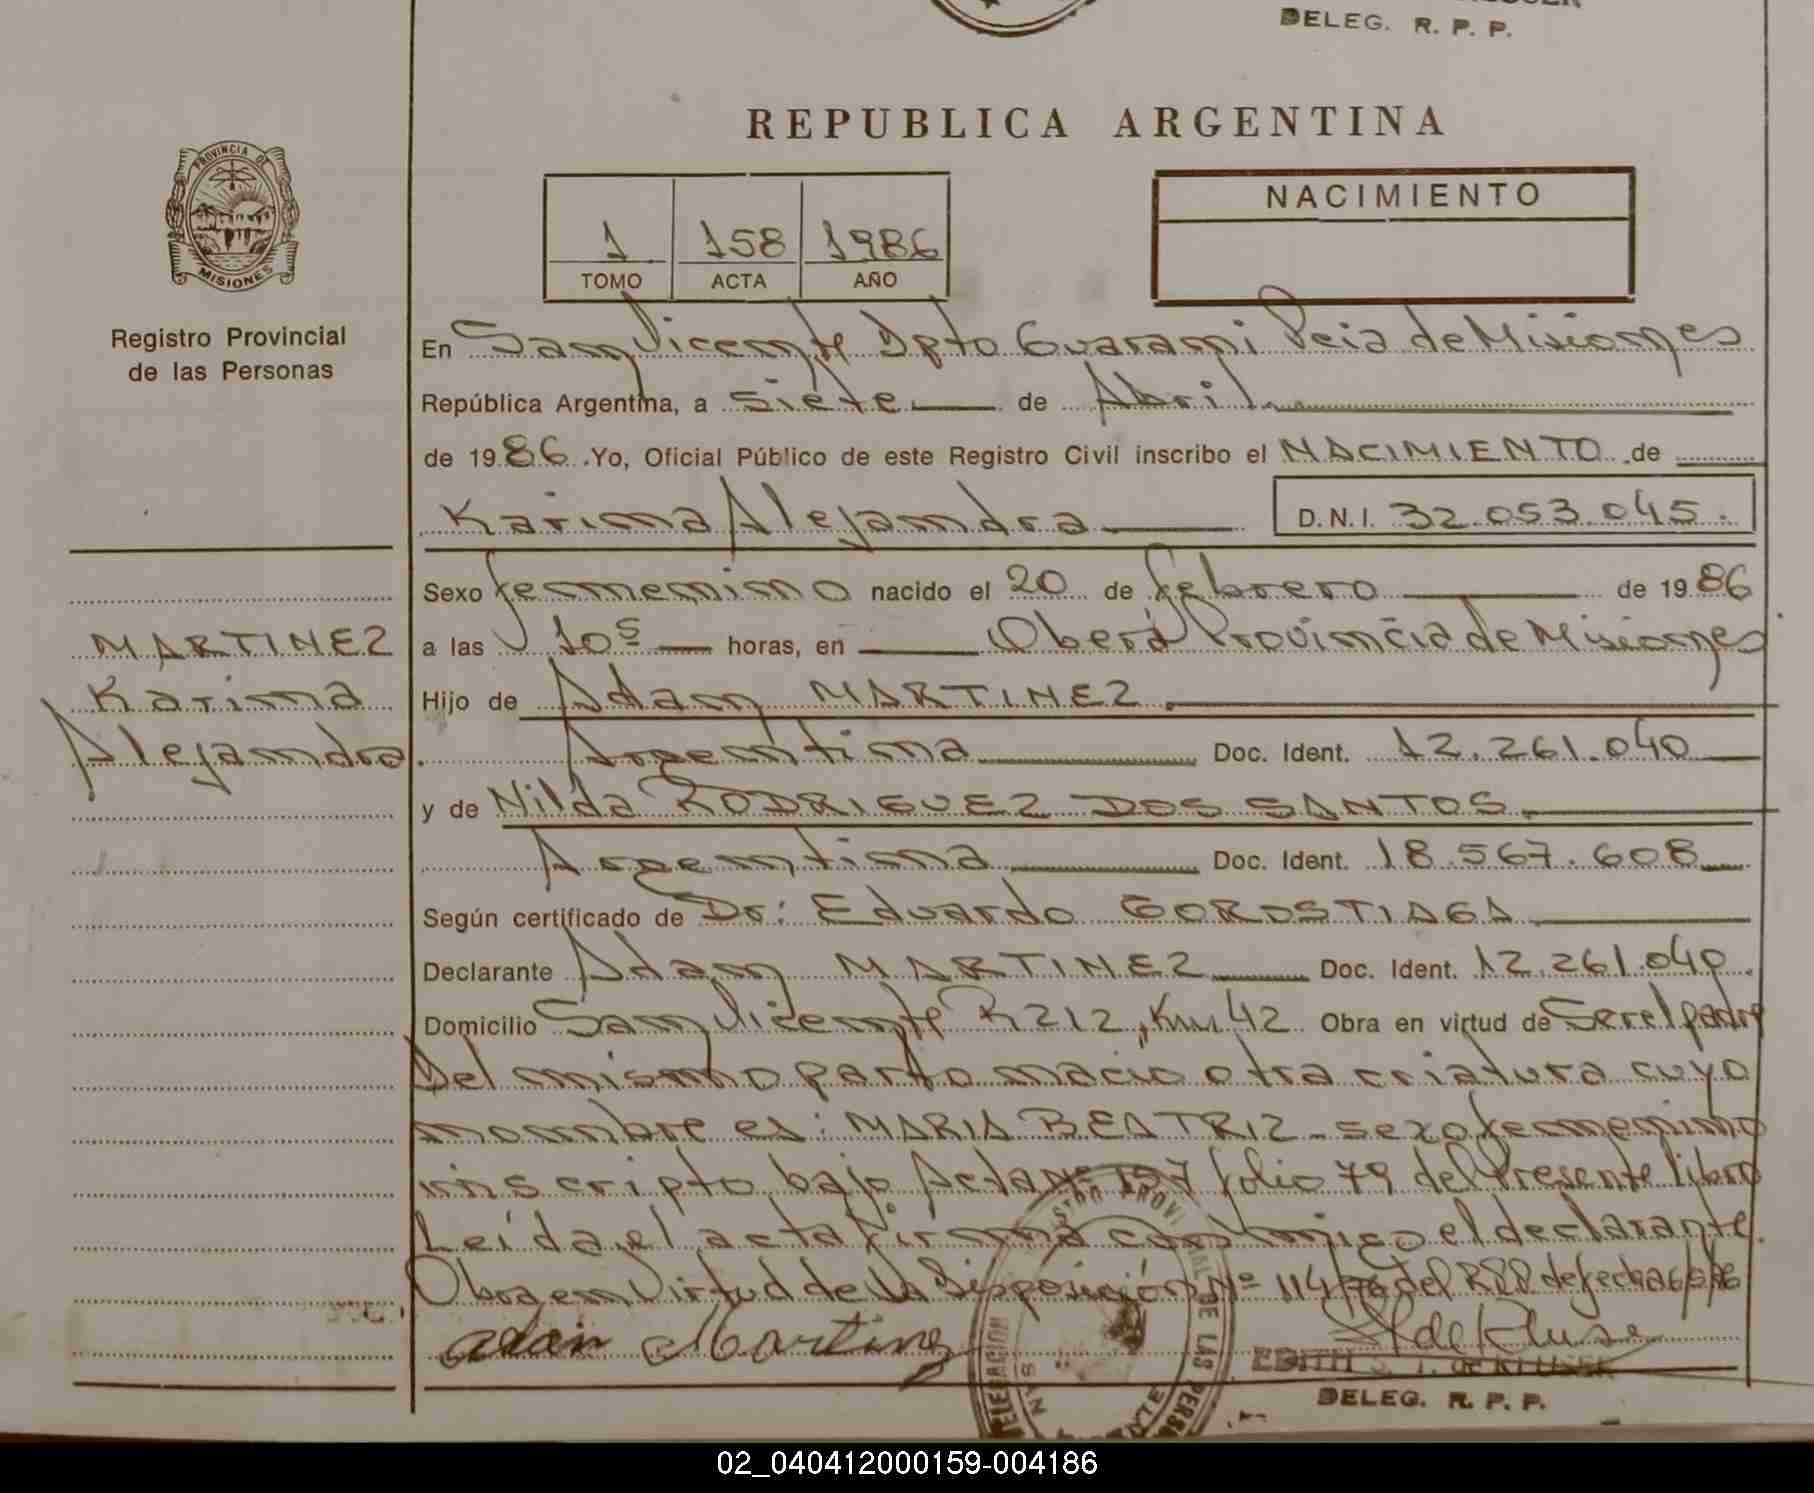 DELEG. R. P. P.
REPUBLICA ARGENTINA
PROVINCIA DE
MISIONES
Registro Provincial
de las Personas
1 158 1986
TOMO ACTA AÑO
NACIMIENTO
En San Vicente Dpto Guarani Pcia de Misiones
República Argentina, a siete de Abril
de 1986. Yo, Oficial Público de este Registro Civil inscribo el NACIMIENTO de
Karina Alejandra D.N.I. 32.053.045.
Sexo femenino nacido el 20 de febrero de 1986
MARTINEZ
Karina
Alejandra
a las 10 horas, en Oberá Provincia de Misiones
Hijo de Adan MARTINEZ
Argentina Doc. Ident. 12.261.040
y de Nilda RODRIGUEZ DOS SANTOS
Argentina Doc. Ident. 18.567.608
Según certificado de Dr: Eduardo GOROSTIAGA
Declarante Adan MARTINEZ Doc. Ident. 12.261.040.
Domicilio San Vicente R 212, Km 42 Obra en virtud de Ser el padre
Del mismo parto nacio otra criatura cuyo
nombre es: MARIA BEATRIZ - sexo femenino
inscripto bajo Acta Nº 157 folio 79 del Presente libro
Leída el acta firma conmigo el declarante.
Obra en Virtud de la Disposición Nº 114/76 del RPP de fecha
adan Martinez
EDITH
DELEG. R. P. P.
02_040412000159-004186